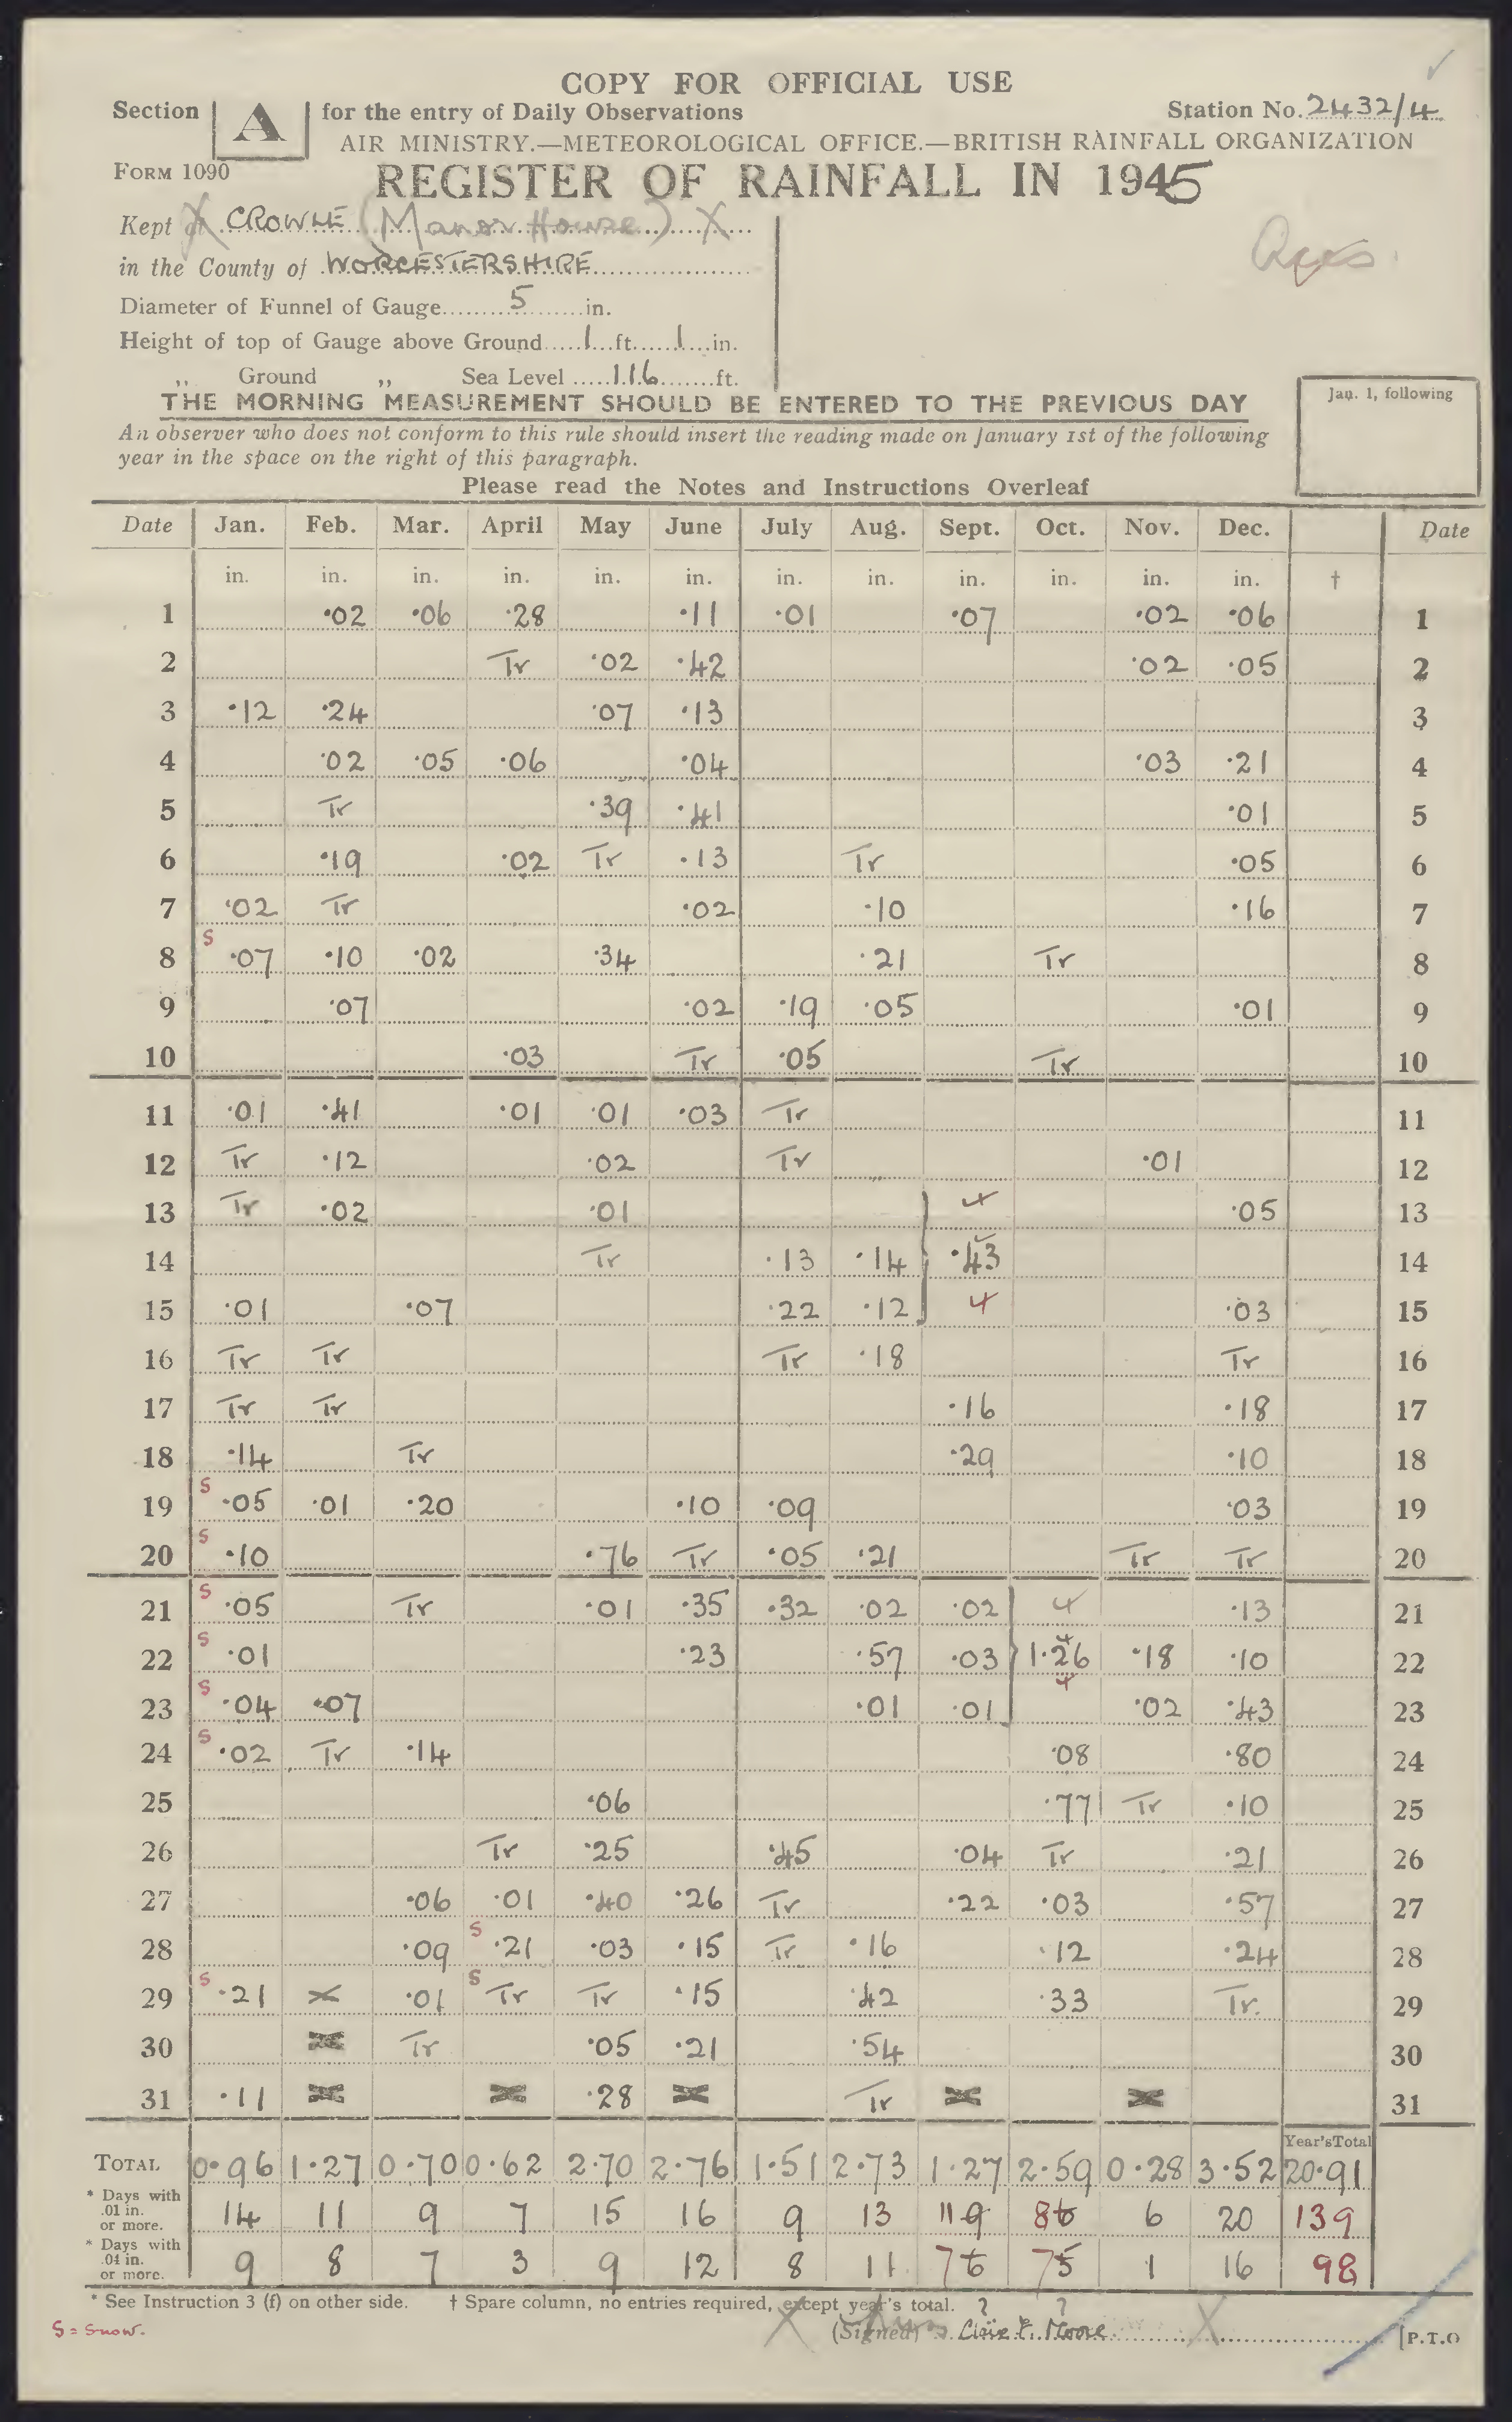 COPY FOR OFFICIAL USE
Section A for the entry of Daily Observations Station No. 2432/4
AIR MINISTRY.—METEOROLOGICAL OFFICE.—BRITISH RAINFALL ORGANIZATION
FORM 1090
REGISTER OF RAINFALL IN 1945
Kept at CROWLE (Manor House) X
in the County of WORCESTERSHIRE
Diameter of Funnel of Gauge 5 in.
Height of top of Gauge above Ground 1 ft. 1 in.
„ Ground „ Sea Level 116 ft.
THE MORNING MEASUREMENT SHOULD BE ENTERED TO THE PREVIOUS DAY
Jan. 1, following
An observer who does not conform to this rule should insert the reading made on January 1st of the following
year in the space on the right of this paragraph.
Please read the Notes and Instructions Overleaf
Date Jan. Feb. Mar. April May June July Aug. Sept. Oct. Nov. Dec. Date
in. in. in. in. in. in. in. in. in. in. in. in. †
1 ·02 ·06 ·28 ·11 ·01 ·07 ·02 ·06 1
2 Tr ·02 ·42 ·02 ·05 2
3 ·12 ·24 ·07 ·13 3
4 ·02 ·05 ·06 ·04 ·03 ·21 4
5 Tr ·39 ·41 ·01 5
6 ·19 ·02 Tr ·13 Tr ·05 6
7 ·02 Tr ·02 ·10 ·16 7
8 S ·07 ·10 ·02 ·34 ·21 Tr 8
9 ·07 ·02 ·19 ·05 ·01 9
10 ·03 Tr ·05 Tr 10
11 ·01 ·41 ·01 ·01 ·03 Tr 11
12 Tr ·12 ·02 Tr ·01 12
13 Tr ·02 ·01 ·05 13
14 Tr ·13 ·14 ·43 14
15 ·01 ·07 ·22 ·12 ·03 15
16 Tr Tr Tr ·18 Tr 16
17 Tr Tr ·16 ·18 17
18 ·14 Tr ·29 ·10 18
19 S ·05 ·01 ·20 ·10 ·09 ·03 19
20 S ·10 ·76 Tr ·05 ·21 Tr Tr 20
21 S ·05 Tr ·01 ·35 ·32 ·02 ·02 ·13 21
22 S ·01 ·23 ·57 ·03 1·26 ·18 ·10 22
23 S ·04 ·07 ·01 ·01 ·02 ·43 23
24 S ·02 Tr ·14 ·08 ·80 24
25 ·06 ·77 Tr ·10 25
26 Tr ·25 ·45 ·04 Tr ·21 26
27 ·06 ·01 ·40 ·26 Tr ·22 ·03 ·57 27
28 ·09 S ·21 ·03 ·15 Tr ·16 ·12 ·24 28
29 S ·21 X ·01 S Tr Tr ·15 ·42 ·33 Tr. 29
30 Tr ·05 ·21 ·54 30
31 ·11 ·28 Tr 31
Year's Total
TOTAL 0·96 1·27 0·70 0·62 2·70 2·76 1·51 2·73 1·27 2·59 0·28 3·52 20·91
* Days with .01 in. or more. 14 11 9 7 15 16 9 13 11 9 8 6 6 20 139
* Days with .04 in. or more. 9 8 7 3 9 12 8 11 7 6 7 5 1 16 98
* See Instruction 3 (f) on other side. † Spare column, no entries required, except year's total. ? ?
S = Snow. (Signed) Moore [P.T.O